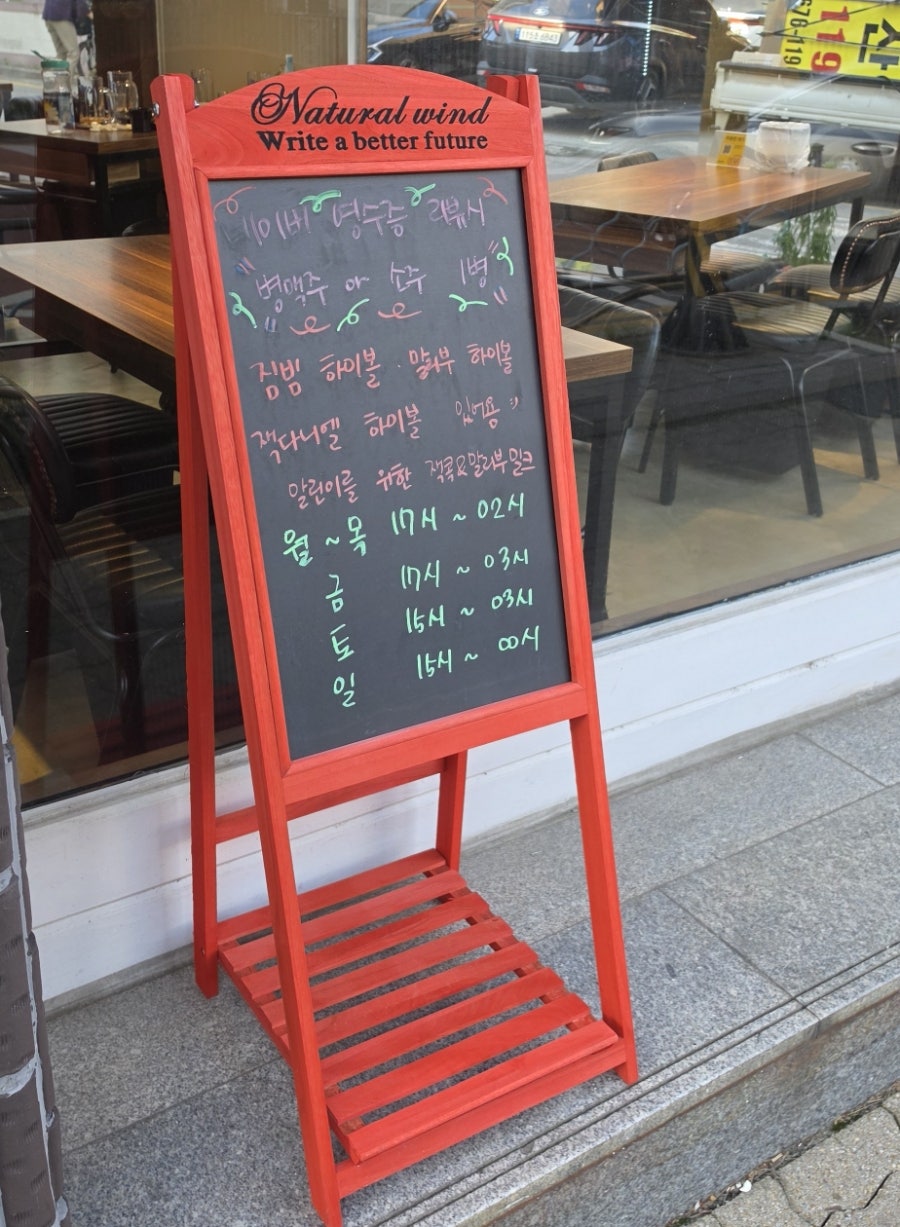 Natural wind
Write a better future
네이버 영수증 리뷰시
"병맥주 or 소주 1병"
짐빔 하이볼 · 말리부 하이볼
잭다니엘 하이볼 있어용
알린이를 위한 잭콕&말리부밀크
월 ~ 목 17시 ~ 02시
금 17시 ~ 03시
토 15시 ~ 03시
일 15시 ~ 00시
119
678-119